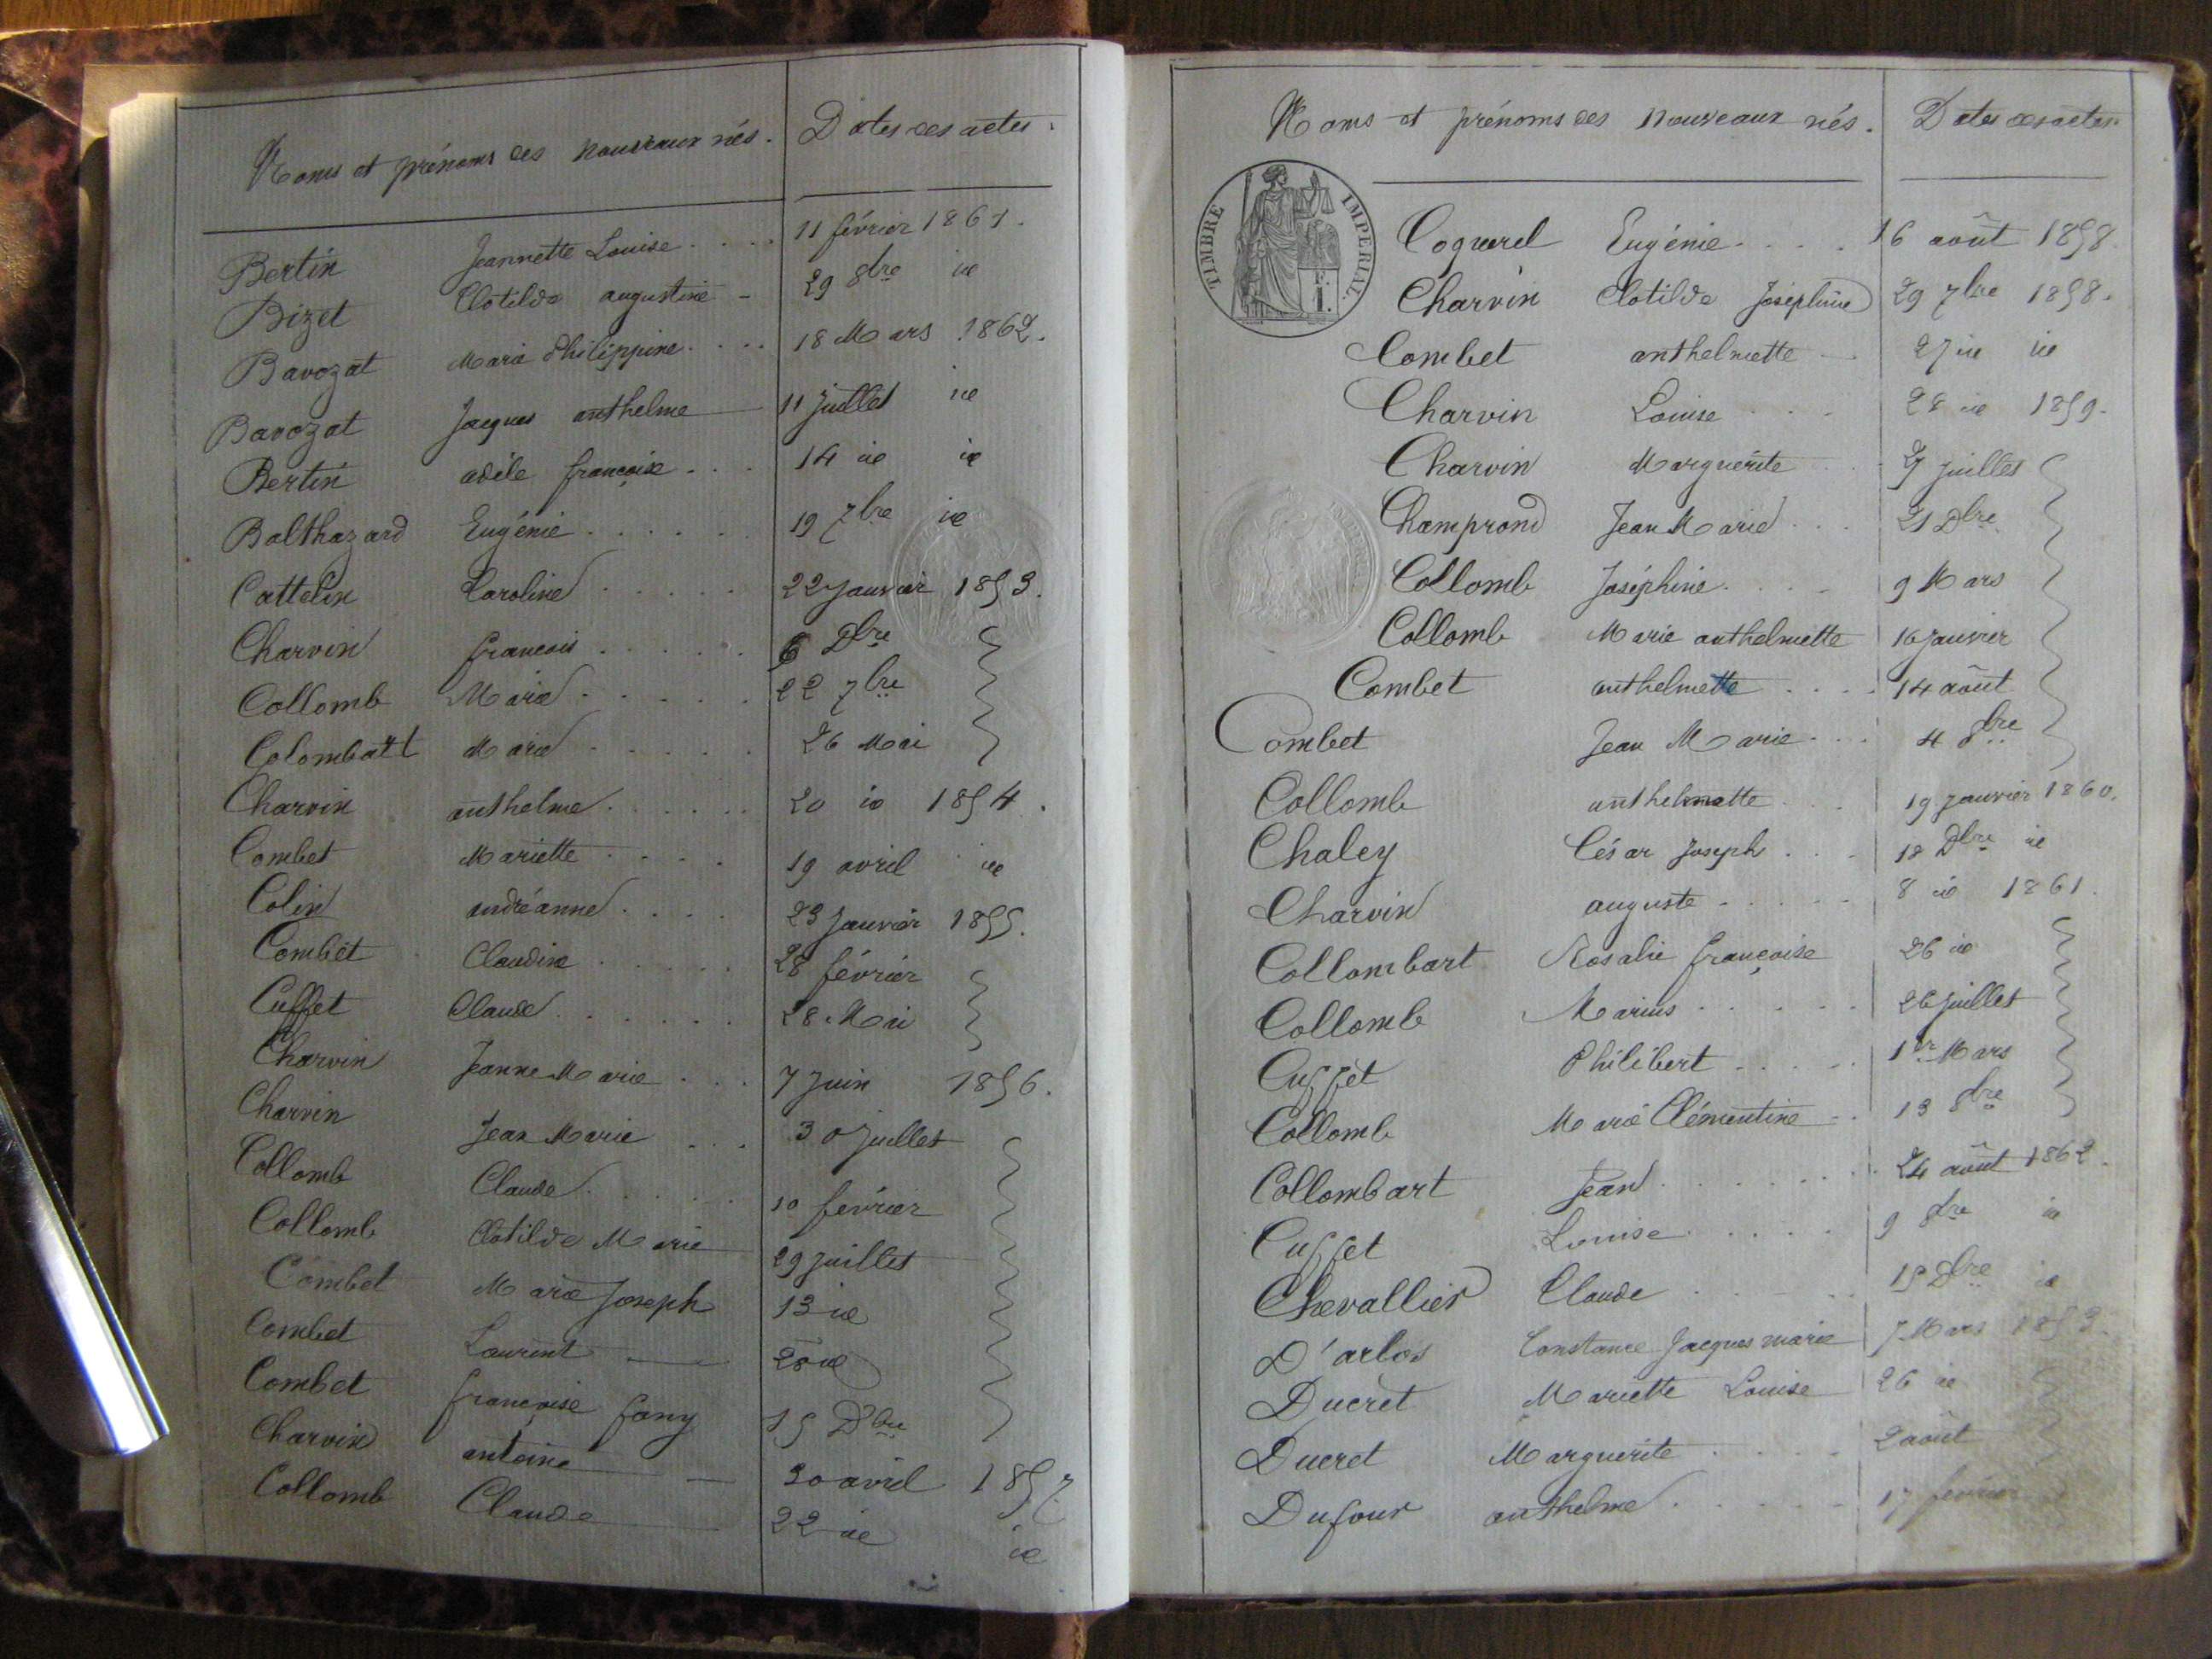 Noms et prénoms des nouveaux nés. Dates des actes.
Bertin Jeannette Louise .... 11 février 1861.
Bizet Clotilde augustine - 29 8bre id
Bavozat Marie Philippine .... 18 Mars 1862.
Bavozat Jacques anthelme 11 juillet id
Bertin adèle françoise ... 14 id id
Balthazard Eugénie ...... 19 7bre id
Cattelin Caroline ..... 22 Janvier 1853.
Charvin francois ..... 6 Dbre
Collomb Marie ..... 22 7bre
Colombatt Marie ..... 26 Mai
Charvin anthelme ...... 20 id 1854.
Combet Mariette .... 19 avril id
Colin andréanne .... 23 Janvier 1855.
Combet Claudine ..... 28 février
Cuffet Claude ...... 28 Mai
Charvin Jeanne Marie ... 7 Juin 1856.
Charvin Jean Marie ... 30 Juillet
Collomb Claude ..... 10 février
Collomb Clotilde Marie 29 juillet
Combet Marie Joseph 13 id
Combet Laurent — 28 id
Combet françoise fany 15 Dbre
Charvin antoine — 30 avril 1857
Collomb Claude 22 id id
Noms et prénoms des nouveaux nés. Dates des actes
TIMBRE IMPERIAL
1.
Coquard Eugénie .... 16 août 1858.
Charvin Clotilde Joséphine 29 7bre 1858.
Combet anthelmette — 27 id id
Charvin Louise ... 28 id 1859.
Charvin Marguerite .. 27 juillet
Champrond Jean Marie ... 21 Dbre
Collomb Joséphine .... 9 Mars
Collomb Marie anthelmette 16 janvier
Combet anthelmette .... 14 août
Combet Jean Marie ... 4 8bre
Collomb anthelmette ... 19 janvier 1860.
Chaley César Joseph ... 18 Dbre id
Charvin auguste ..... 8 id 1861.
Collombart Rosalie françoise 26 id
Collomb Marius ..... 26 juillet
Cuffet Philibert .... 1er Mars
Collomb Marie Clémentine .. 13 8bre
Collombart Jean ...... 24 août 1862.
Cuffet Louise ..... 9 8bre id
Chevallier Claude .... 15 Dbre id
D'arlos Constance Jacques marie 7 Mars 1853.
Ducret Mariette Louise 26 id
Ducret Marguerite .... 2 août
Dufour anthelme ..... 17 février